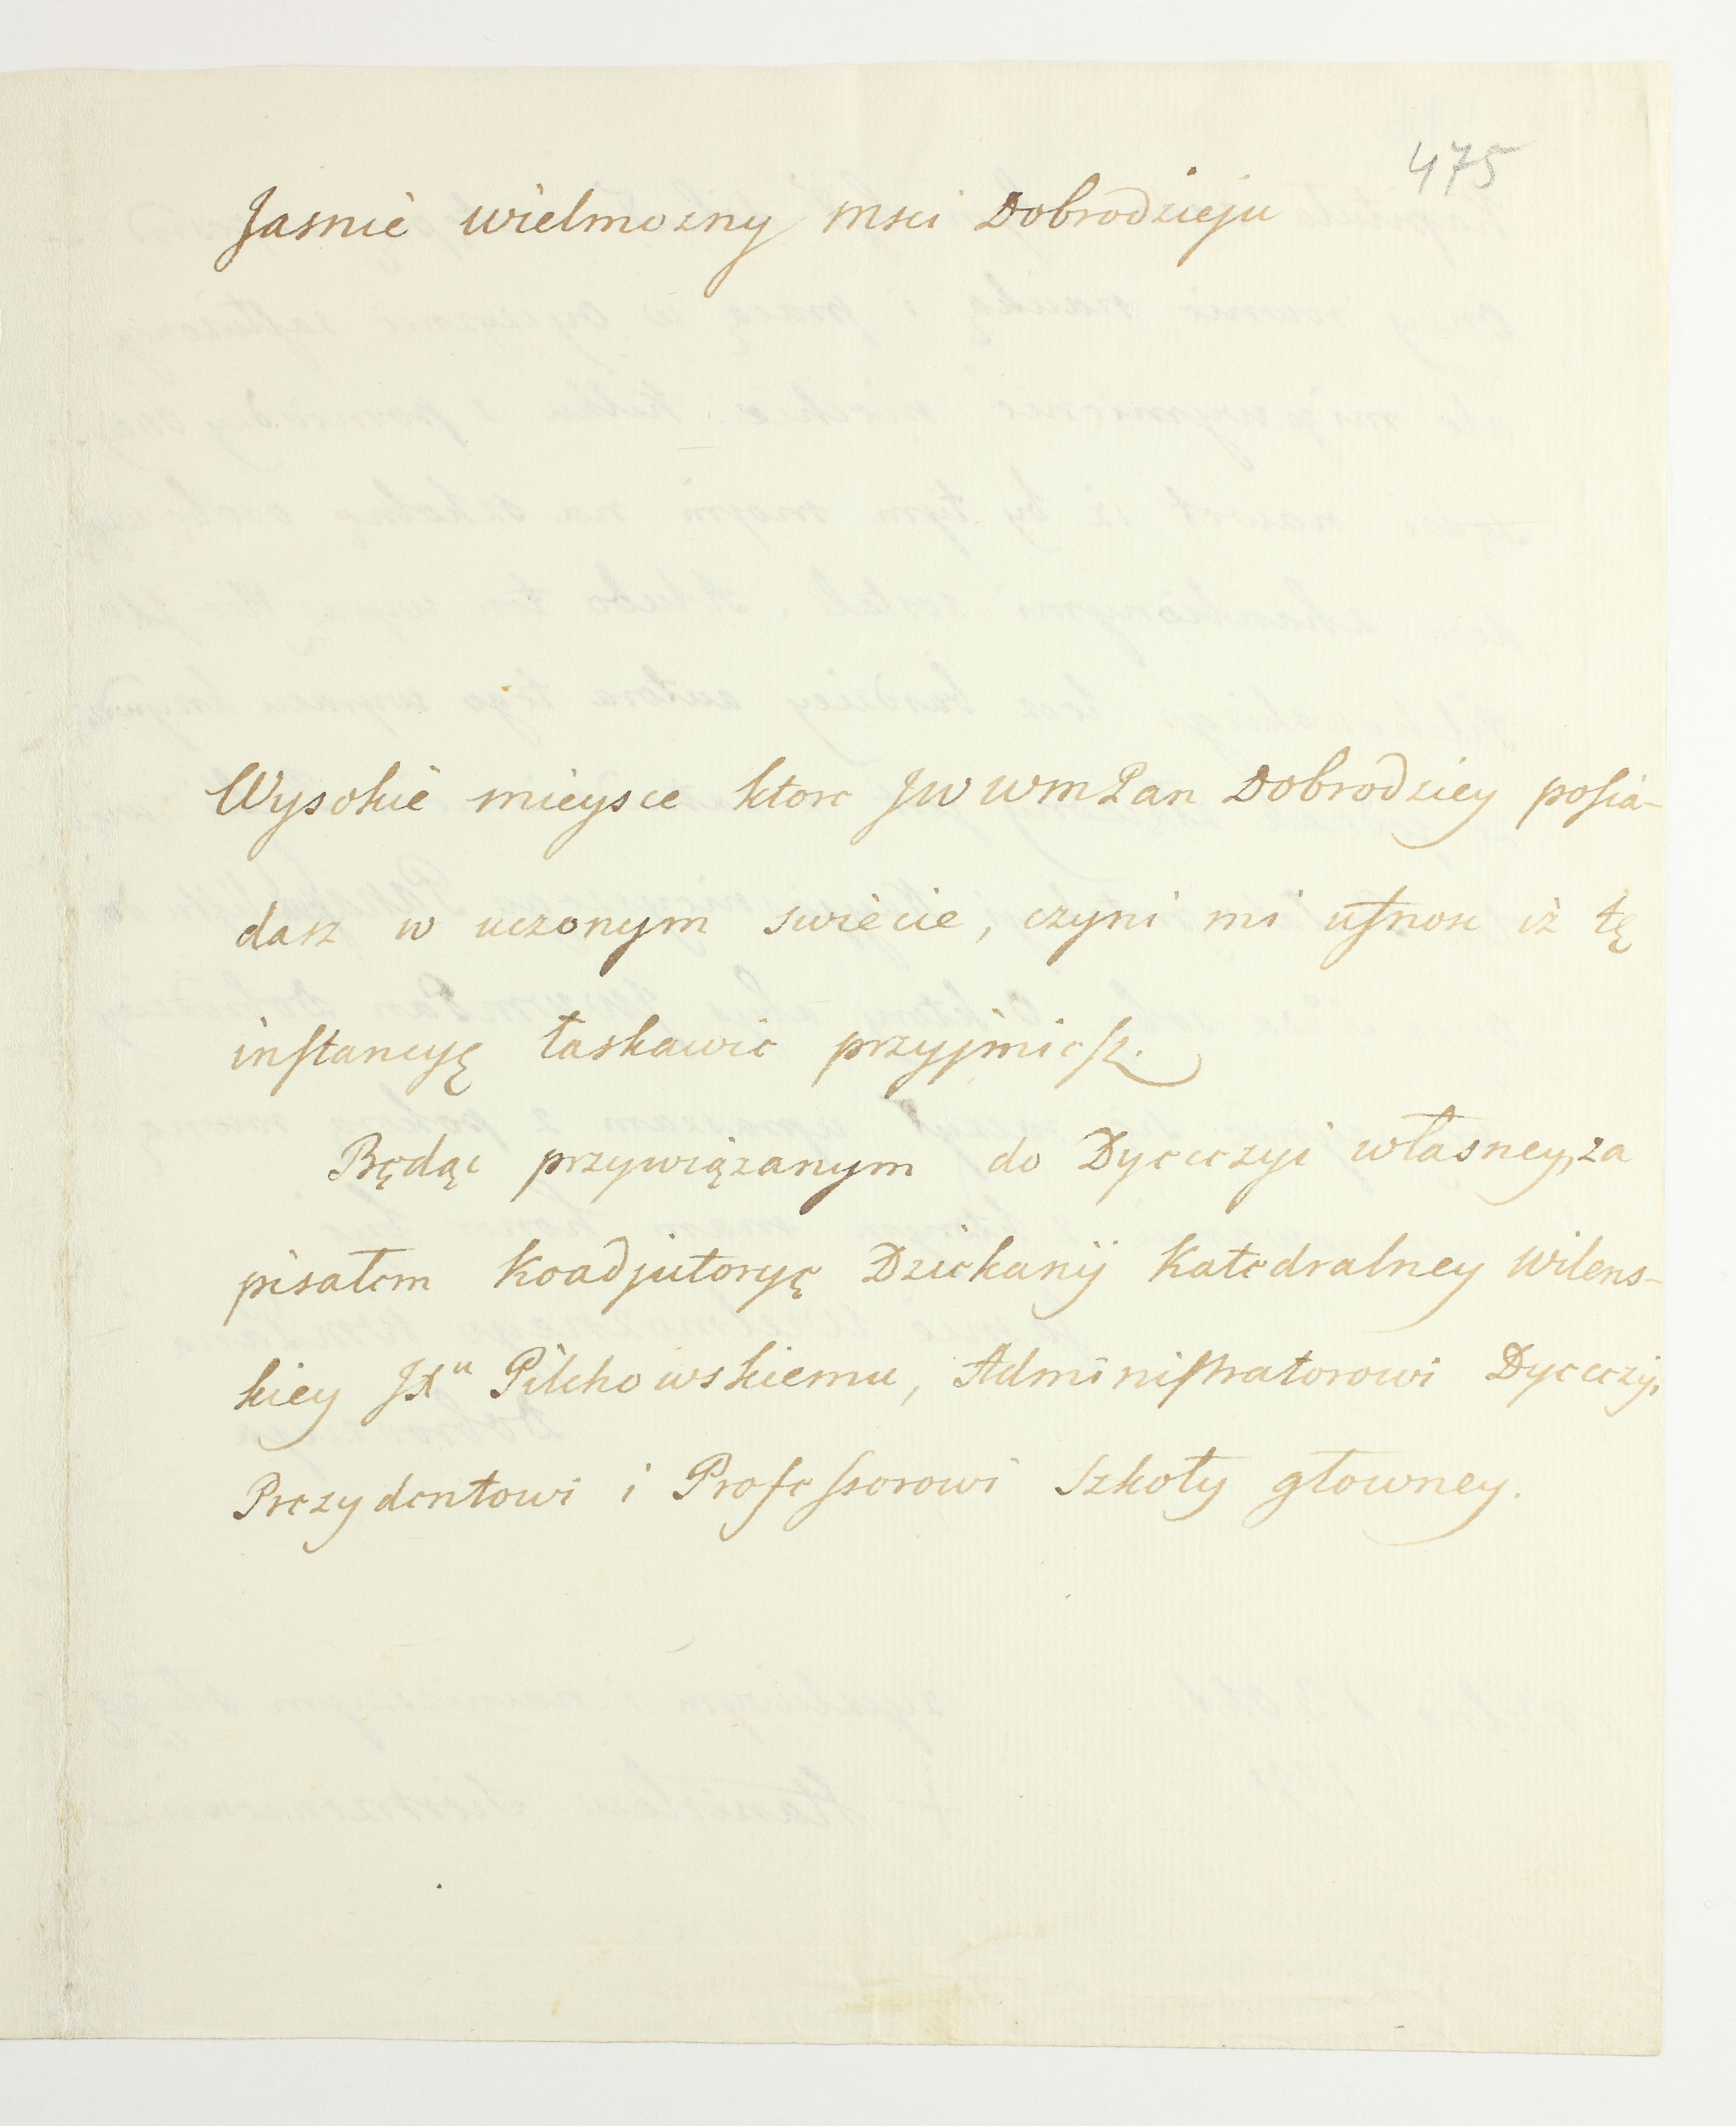 475
Jasnie wielmozny msci Dobrodzieju
Wysokie mieysce ktore JW WMPan Dobrodziey posia-
dasz w uczonym swiecie, czyni mi ufnosc iż tę
instancyę łaskawie przyjmiesz.
Będąc przywiązanym do Dyecezyi własney, za
pisałem Koadjutoryę Dziekanij Katedralney Wilens-
kiey Pilchowskiemu, Administratorowi Dyecezyi,
Prezydentowi i Professorowi Szkoły głowney.